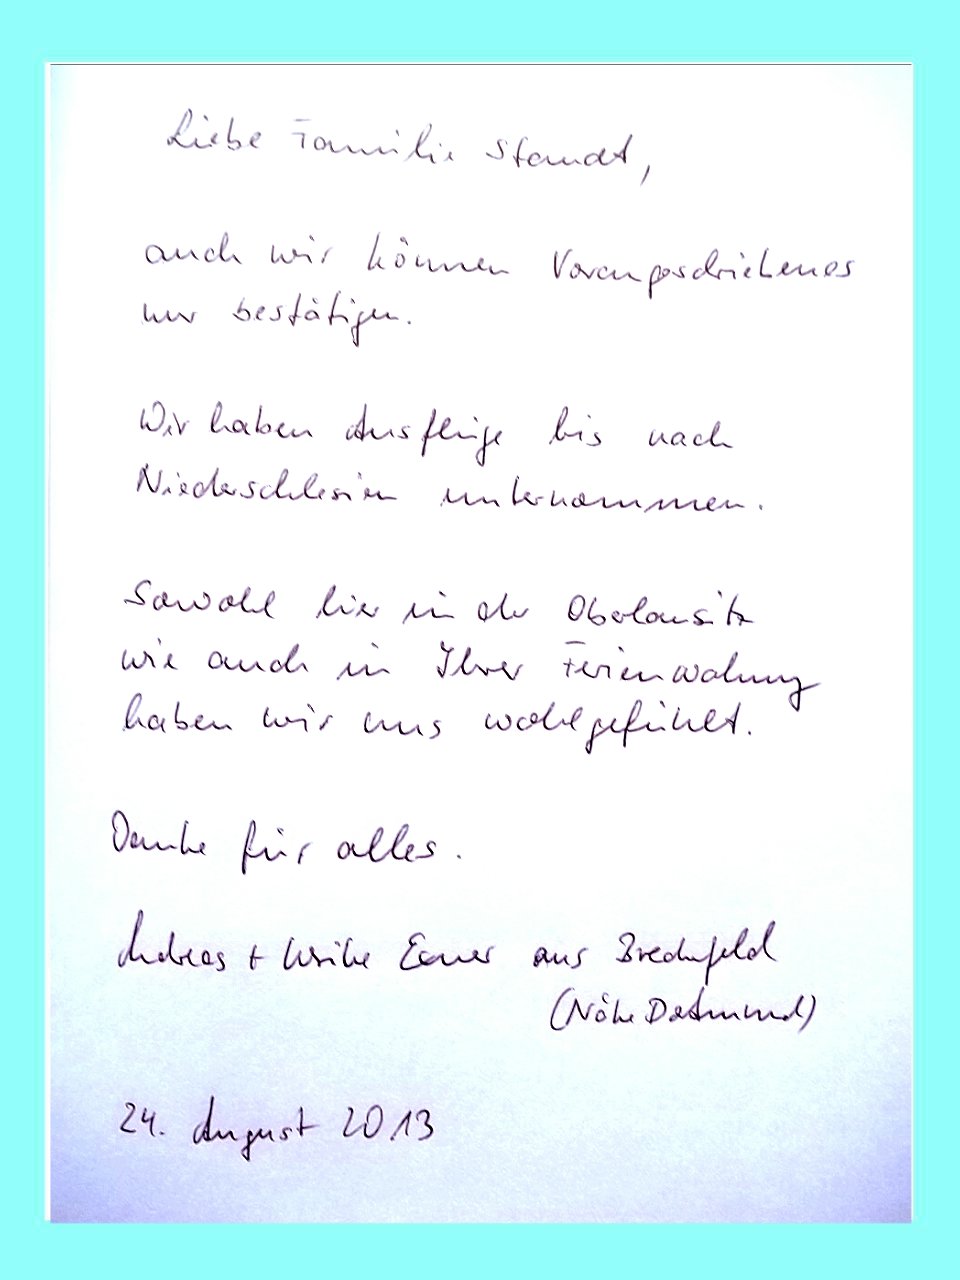 Liebe Familie Standt,
auch wir können Vorangeschriebenes
nur bestätigen.
Wir haben Ausflüge bis nach
Niederschlesien unternommen.
Sowohl hier in der Oberlausitz
wie auch in Ihrer Ferienwohnung
haben wir uns wohlgefühlt.
Danke für alles.
Andreas + Ulrike aus
(Nähe Dortmund)
24. August 2013